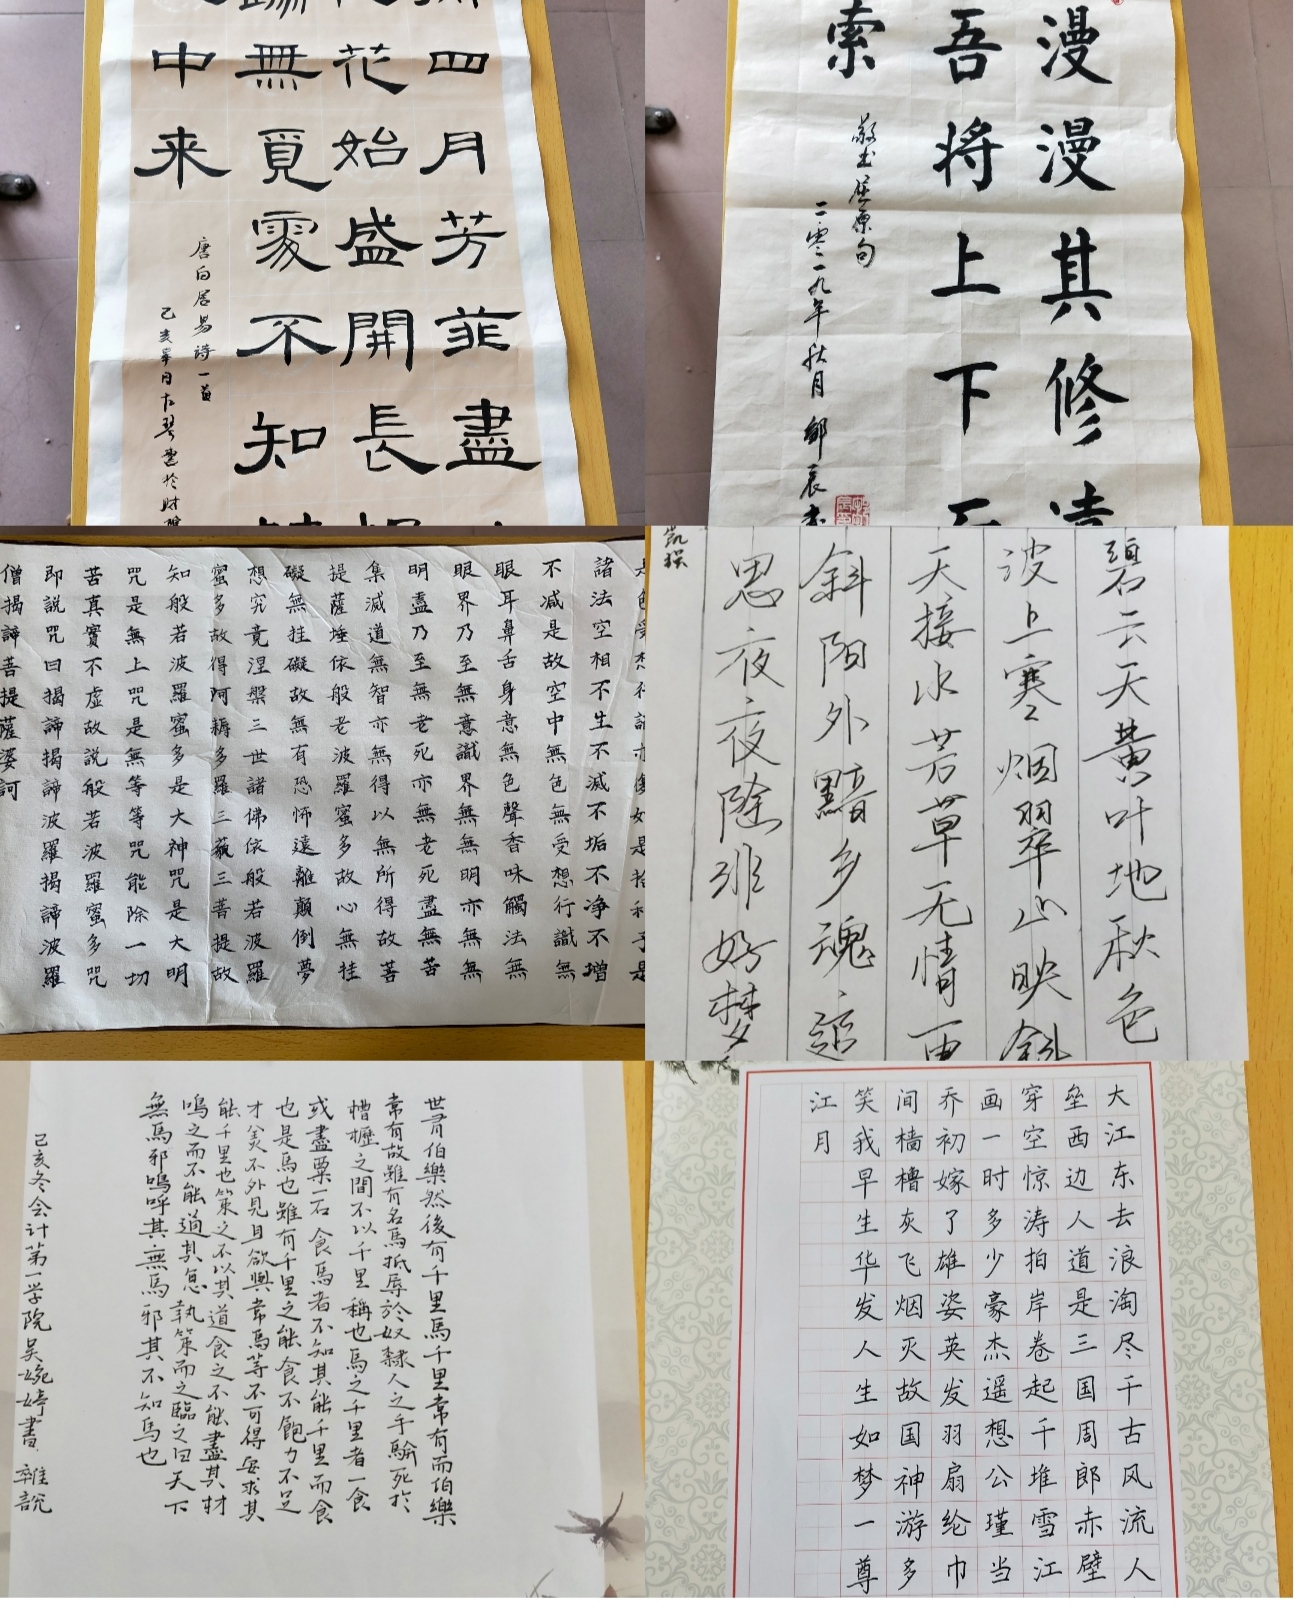 四月芳菲盡
花始盛開長
無覓處不知
中来
唐白居易诗一首
漫漫其修
吾将上下
索
敬书屈原句
二零一九年秋月邹辰书
諸法空相不生不滅不垢不净不增
不减是故空中無色無受想行識無
眼耳鼻舌身意無色聲香味觸法無
眼界乃至無意識界無無明亦無無
明盡乃至無老死亦無老死盡無苦
集滅道無智亦無得以無所得故菩
提薩埵依般若波羅蜜多故心無挂
礙無挂礙故無有恐怖遠離顛倒夢
想究竟涅槃三世諸佛依般若波羅
蜜多故得阿耨多羅三藐三菩提故
知般若波羅蜜多是大神咒是大明
咒是無上咒是無等等咒能除一切
苦真實不虚故説般若波羅蜜多咒
即説咒曰揭諦揭諦波羅揭諦波羅
僧揭諦菩提薩婆訶
碧云天黄叶地秋色
波上寒烟翠山映斜
天接水芳草无情更
斜阳外黯乡魂追
思夜夜除非好梦
世有伯樂然後有千里馬千里馬常有而伯樂
常有故雖有名馬祇辱於奴隸人之手駢死於
槽櫪之間不以千里稱也馬之千里者一食
或盡粟一石食馬者不知其能千里而食
也是馬也雖有千里之能食不飽力不足
才美不外見且欲與常馬等不可得安求其
能千里也策之不以其道食之不能盡其材
鳴之而不能通其意執策而之臨之曰天下
無馬邪嗚呼其無馬邪其不知馬也
己亥冬会计第一学院吴婉婷書 雜説
大江东去浪淘尽千古风流人
垒西边人道是三国周郎赤壁
穿空惊涛拍岸卷起千堆雪江
画一时多少豪杰遥想公瑾当
乔初嫁了雄姿英发羽扇纶巾
间樯槽灰飞烟灭故国神游多
笑我早生华发人生如梦一尊
江月